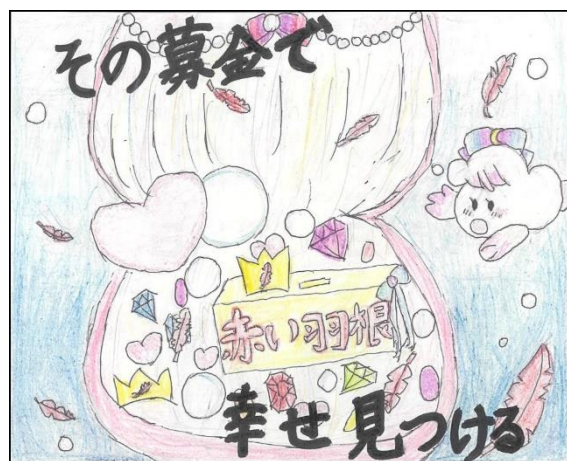 その募金で
赤い羽根
幸せ見つける